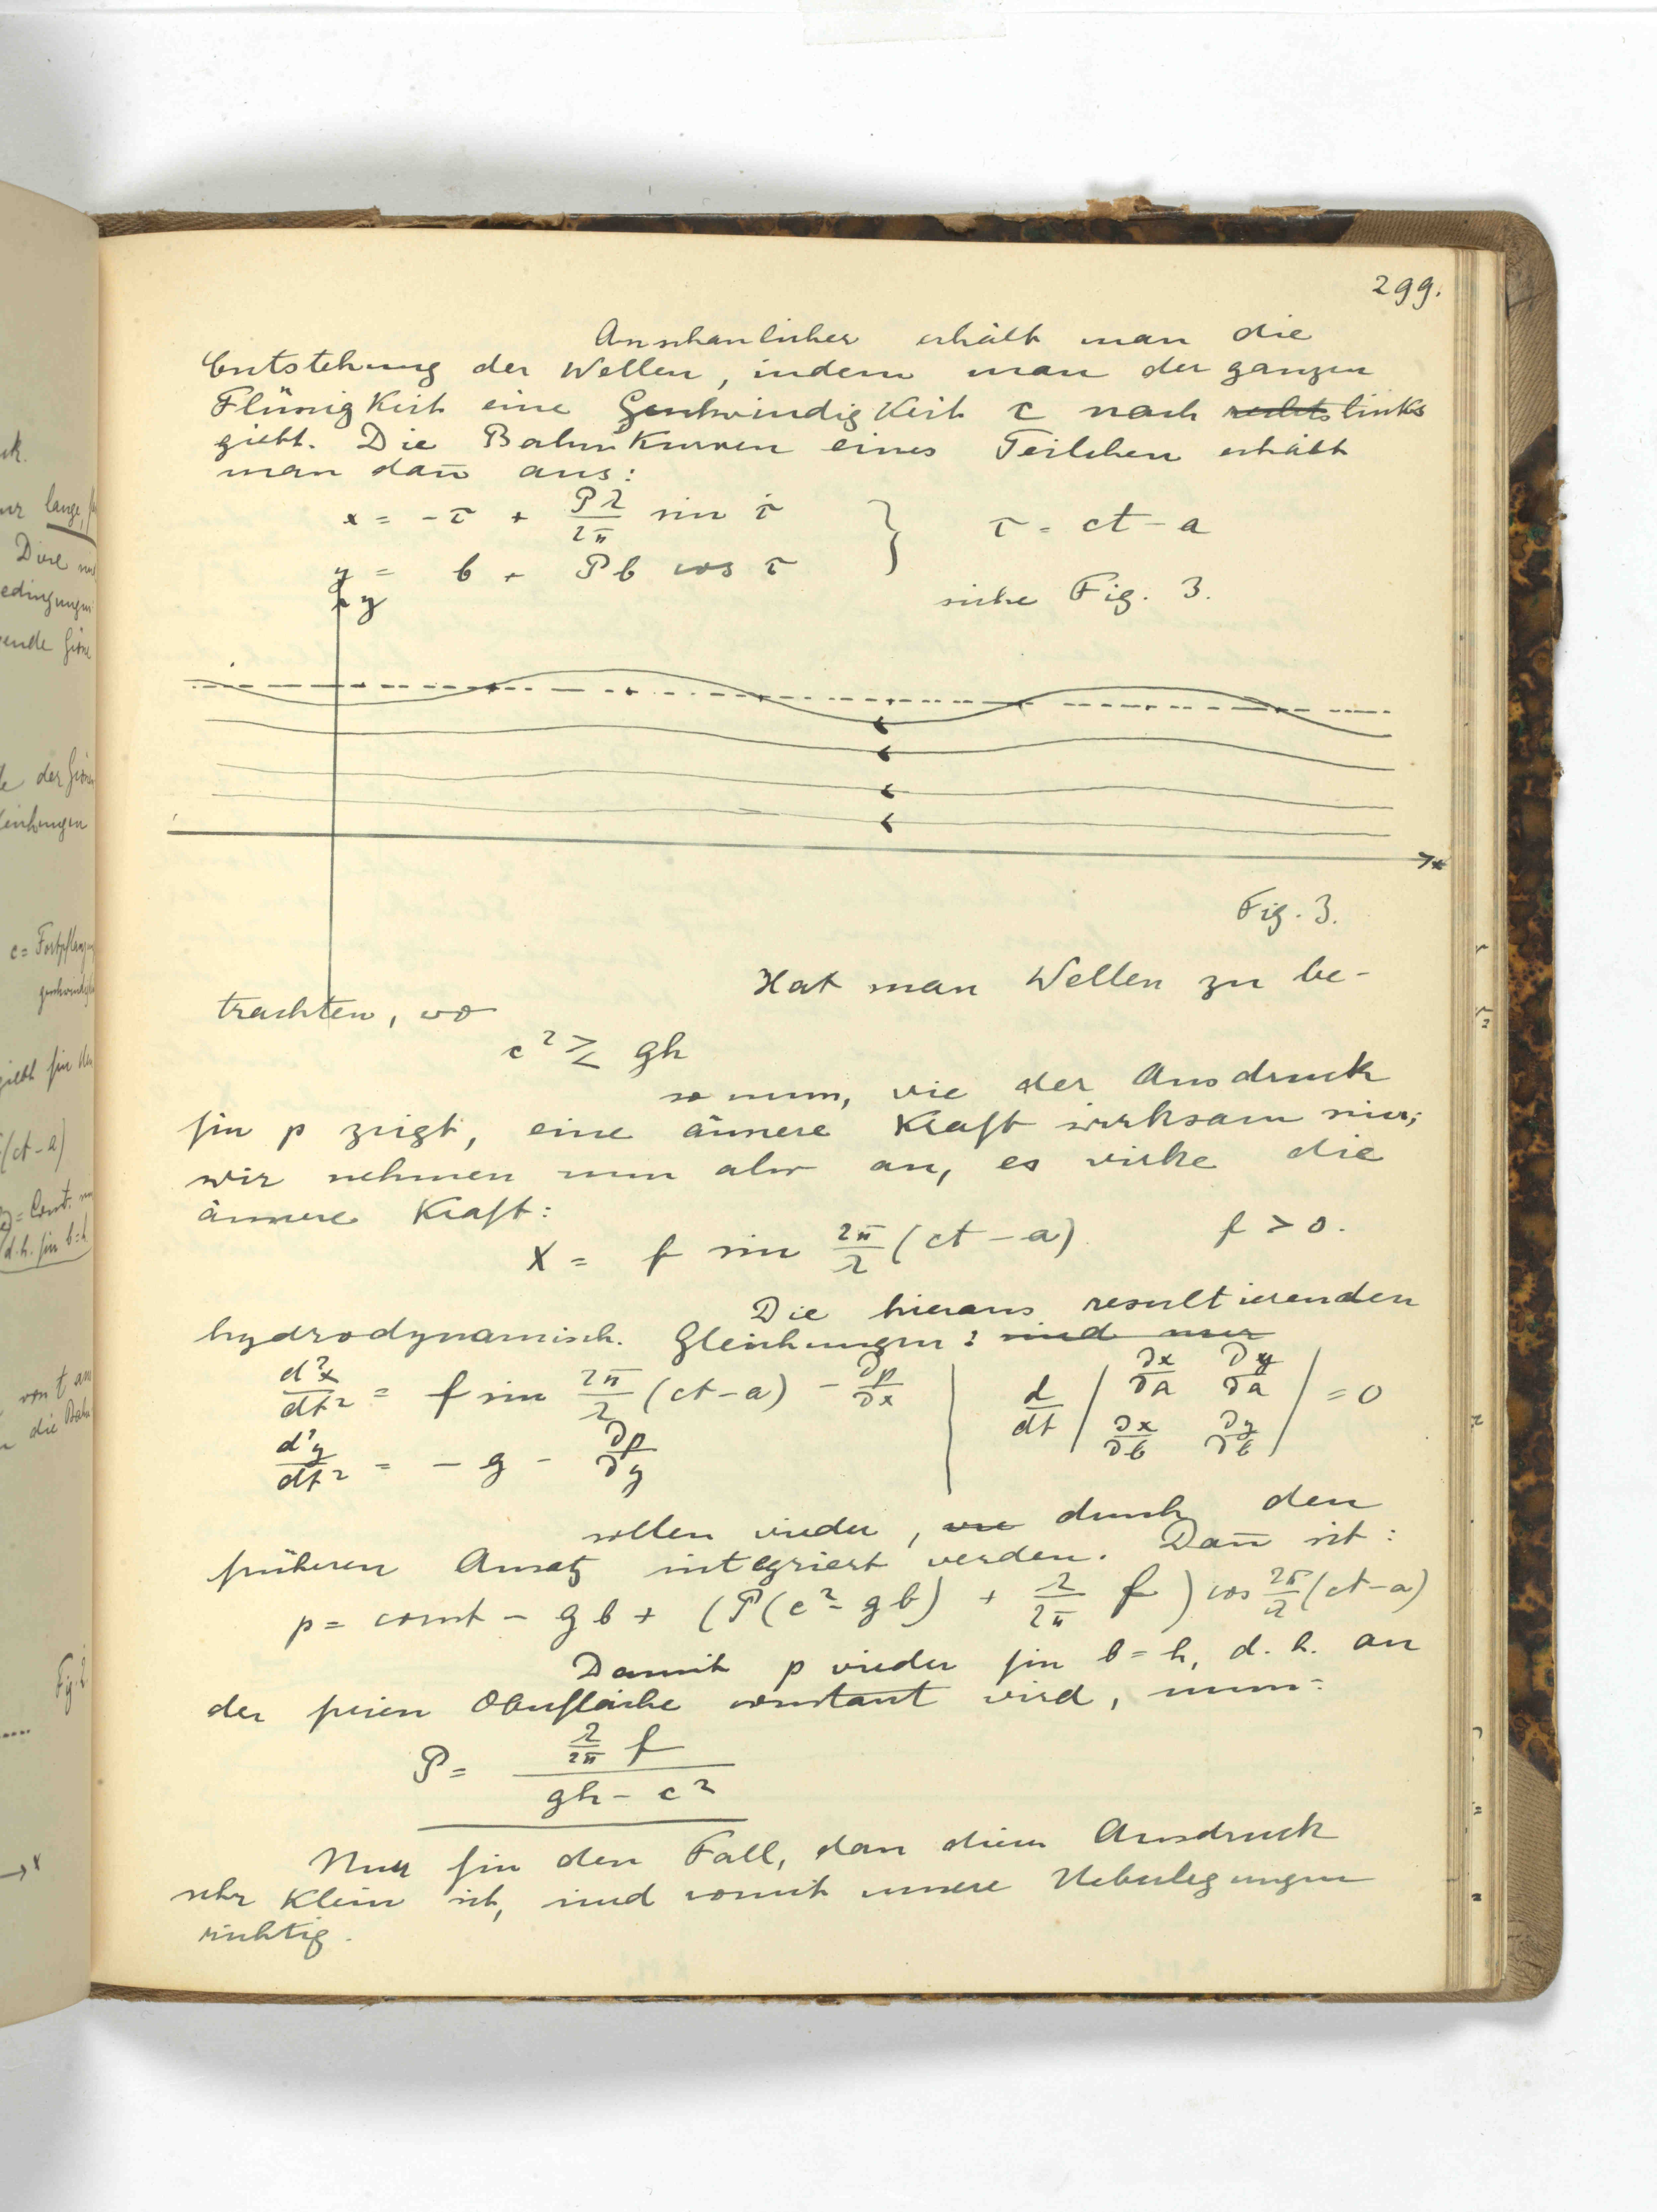 299.
Anschaulicher erhält man die
Entstehung der Wellen, indem man der ganzen
Flüssigkeit eine Geschwindigkeit c nach rechts links
giebt. Die Bahnkurven eines Teilchen erhält
man dan̄ aus:
x = -τ + Pλ/2π sin τ } τ = ct - a
y = b + Pb cos τ
siehe Fig. 3.
y
x
Fig. 3.
Hat man Wellen zu be-
trachten, wo
c² ≷ gh
so muss, wie der Ausdruck
für p zeigt, eine äussere Kraft wirksam sein;
wir nehmen nun also an, es wirke die
äussere Kraft:
X = f sin 2π/λ (ct - a) f > 0.
Die hieraus resultierenden
hydrodynamisch. Gleichungen: sind nur
d²x/dt² = f sin 2π/λ (ct - a) - ∂p/∂x | d/dt | ∂x/∂a ∂y/∂a | = 0
d²y/dt² = - g - ∂p/∂y | ∂x/∂b ∂y/∂b |
sollen wieder, wie durch den
früheren Ansatz integriert werden. Dan̄ ist:
p = const - gb + (P(c² - gb) + λ/2π f) cos 2π/λ (ct - a)
Damit p wieder für b = h, d. h. an
der freien Oberfläche constant wird, muss:
P = λ/2π f / gh - c²
Nur für den Fall, dass dieser Ausdruck
sehr klein ist, sind somit unsere Ueberlegungen
richtig.